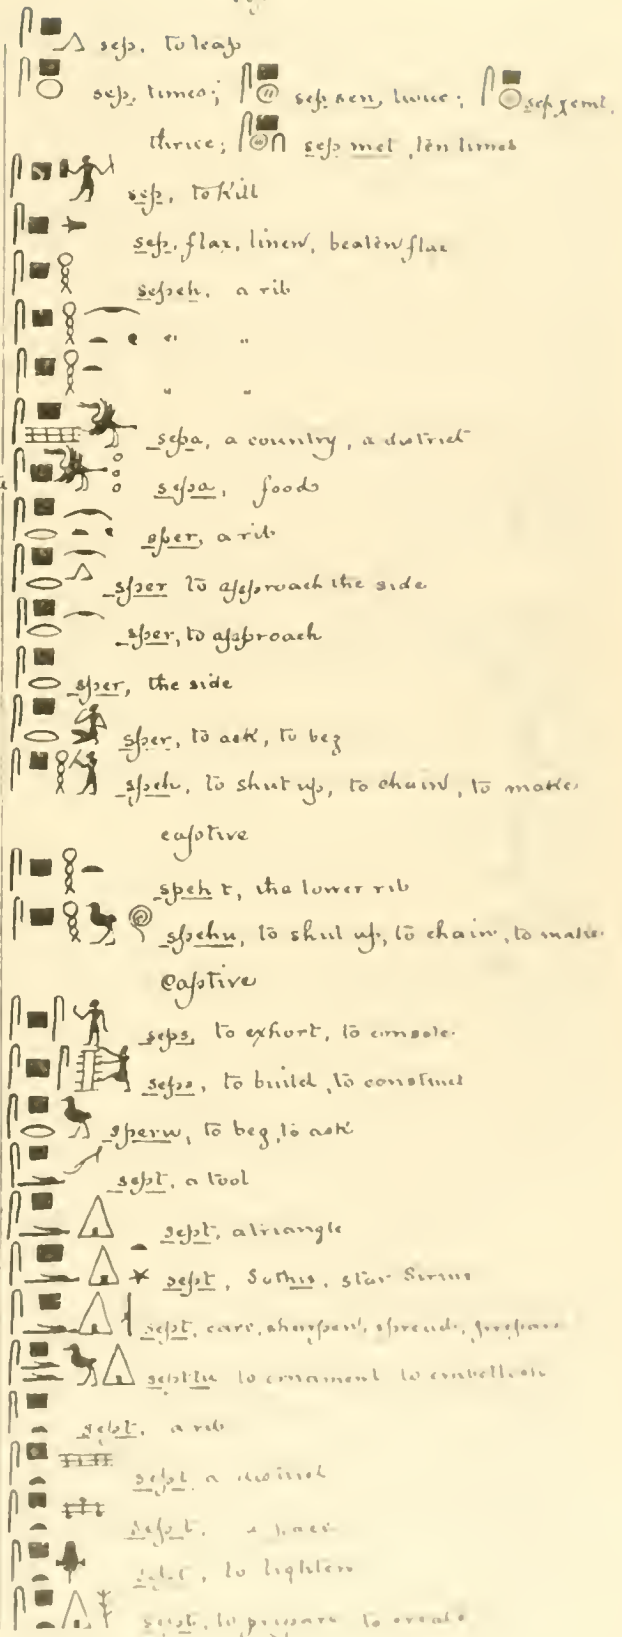 sep, to leap
sep, times; sep sen, twice; sep χemt,
thrice; sep met, ten times
sep, to kill
sep, flax, linen, beaten flax
sepeh, a rib
" "
" "
sepa, a country, a district
sepa, food
sper, a rib
sper to approach the side
sper, to approach
sper, the side
sper, to ask, to beg
speh, to shut up, to chain, to make
captive
speh t, the lower rib
spehu, to shut up, to chain, to make
captive
seps, to exhort, to console
seps, to build, to construct
sperw, to beg, to ask
sept, a tool
sept, a triangle
sept, Sothis, star Sirius
sept, care, sharpen, spread, prepare
septtu to ornament to embellish
sept, a rib
sept a district
sept, a
, to lighten
sept, to prepare to create